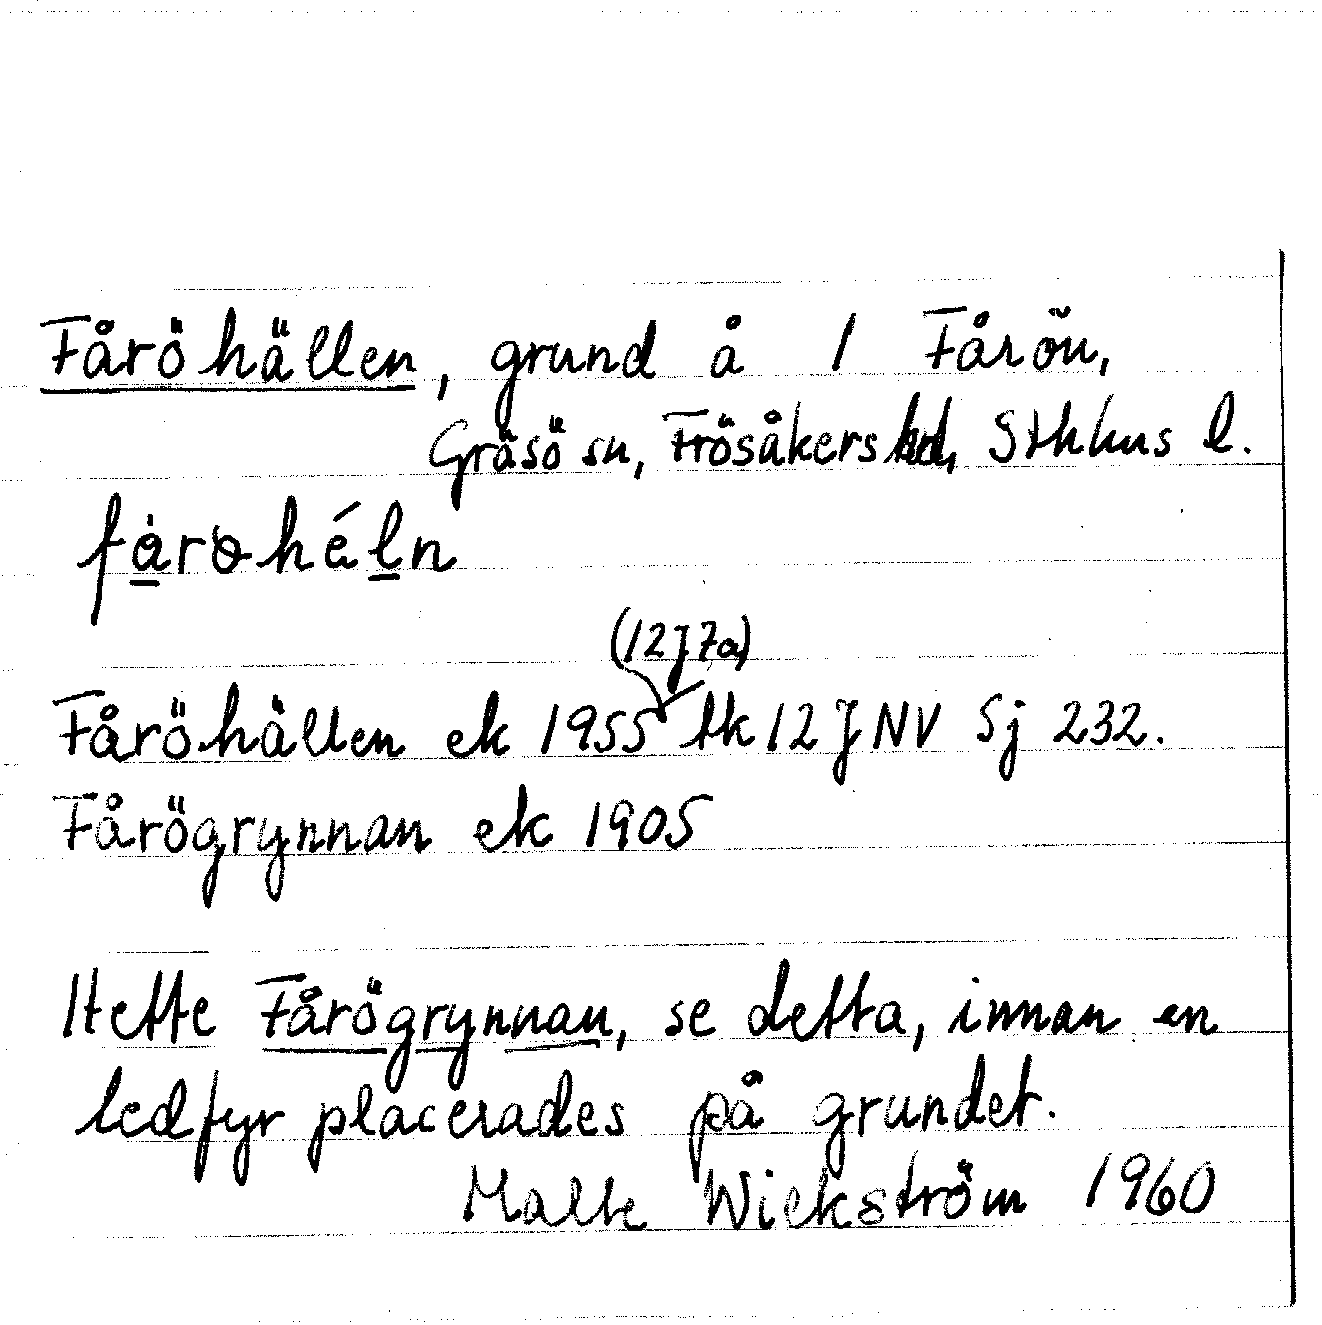 Fåröhällen, grund å 1 Fårön,
Gräsö sn, Frösåkers hd, Sthlms l.
fårohéln
(12J7a)
Fåröhällen ek 1955 tk 12 J NV Sj 232.
Fårögrynnan ek 1905
Hette Fårögrynnan, se detta, innan en
ledfyr placerades på grundet.
Malte Wickström 1960